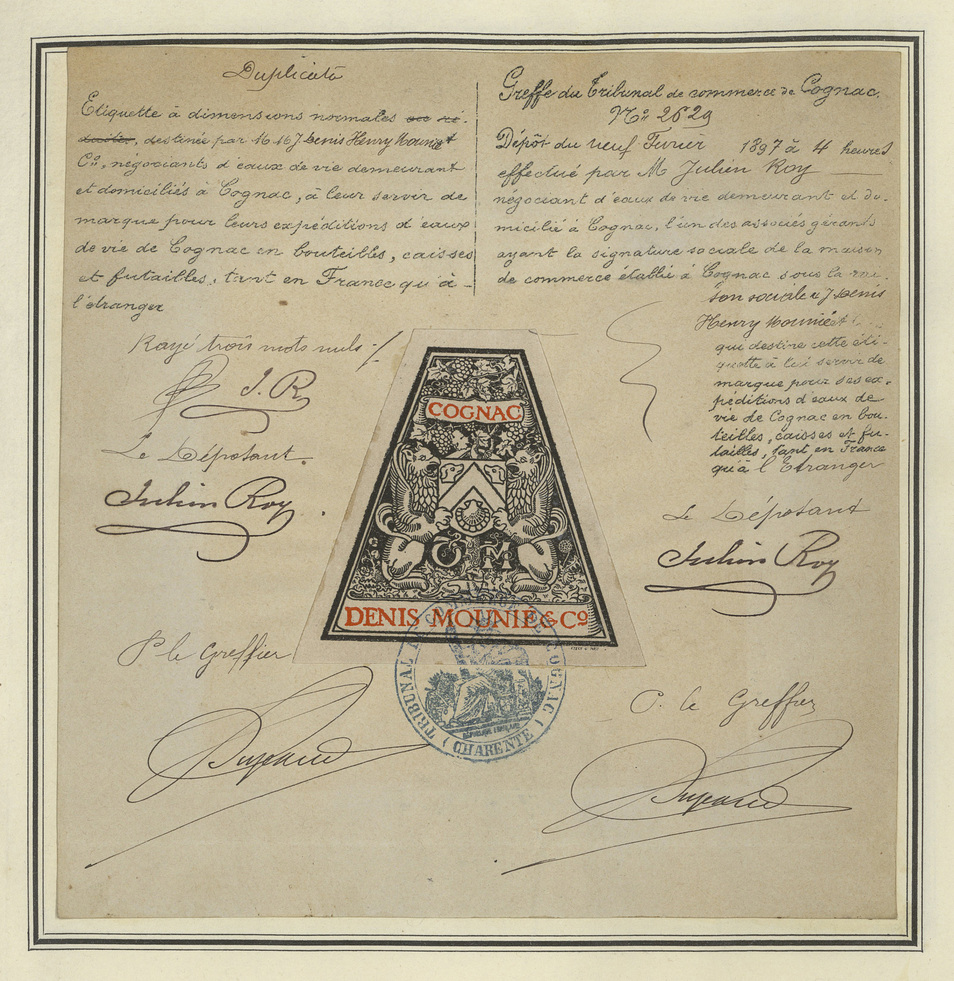 Duplicata
Etiquette à dimensions normales ou ré-
duites, destinée par M M J Denis Henry Mounié et
Cie, négociants d'eaux de vie demeurant
et domiciliés à Cognac, à leur servir de
marque pour leurs expéditions d'eaux
de vie de Cognac en bouteilles, caisses
et futailles, tant en France qu'à
l'étranger
Rayé trois mots nuls ./.
J. R
Le Déposant
Julien Roy
Pr le Greffier
Greffe du Tribunal de commerce de Cognac.
No 2629
Dépôt du neuf Février 1897 à 4 heures
effectué par M Julien Roy
négociant d'eaux de vie demeurant et do-
micilié à Cognac, l'un des associés gérants
ayant la signature sociale de la maison
de commerce établie à Cognac sous la rai-
son sociale J Denis
Henry Mounié et
qui destine cette éti-
quette à lui servir de
marque pour ses ex-
péditions d'eaux de
vie de Cognac en bou-
teilles, caisses et fu-
tailles, tant en France
qu'à l'Etranger
Le Déposant
Julien Roy
P. le Greffier
COGNAC
DM
DENIS MOUNIE & Co
TRIBUNAL DE COMMERCE DE COGNAC
(CHARENTE)